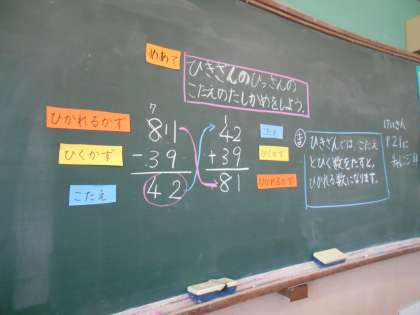 めあて
ひきざんのひっさんの
こたえのたしかめをしよう。
ひかれるかず
ひくかず
こたえ
7
811
-39
42
1
42
+39
81
こたえ
ひくかず
ひかれるかず
ま
ひきざんでは、こたえ
とひく数をたすと、
ひかれる数になります。
P21に